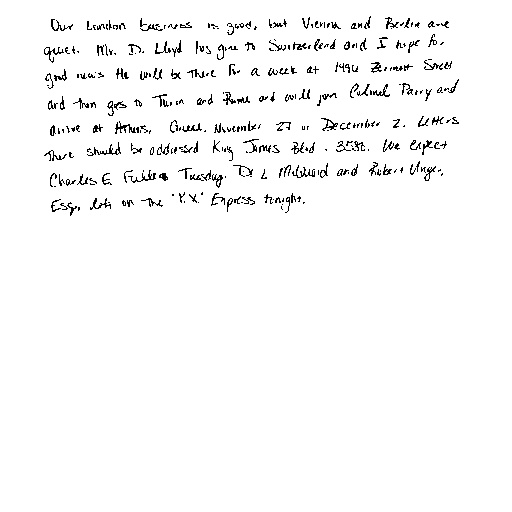 Our London business is good, but Vienna and Berlin are
quiet. Mr. D. Lloyd has gone to Switzerland and I hope for
good news. He will be there for a week at 1496 Zermott Street
and then goes to Turin and Rome and will join Colonel Parry and
arrive at Athens, Greece, November 27 or December 2. Letters
there should be addressed King James Blvd. 3538. We expect
Charles E. Fuller Tuesday. Dr L McQuaid and Robert Unger,
Esq., left on the "Y.X." Express tonight.